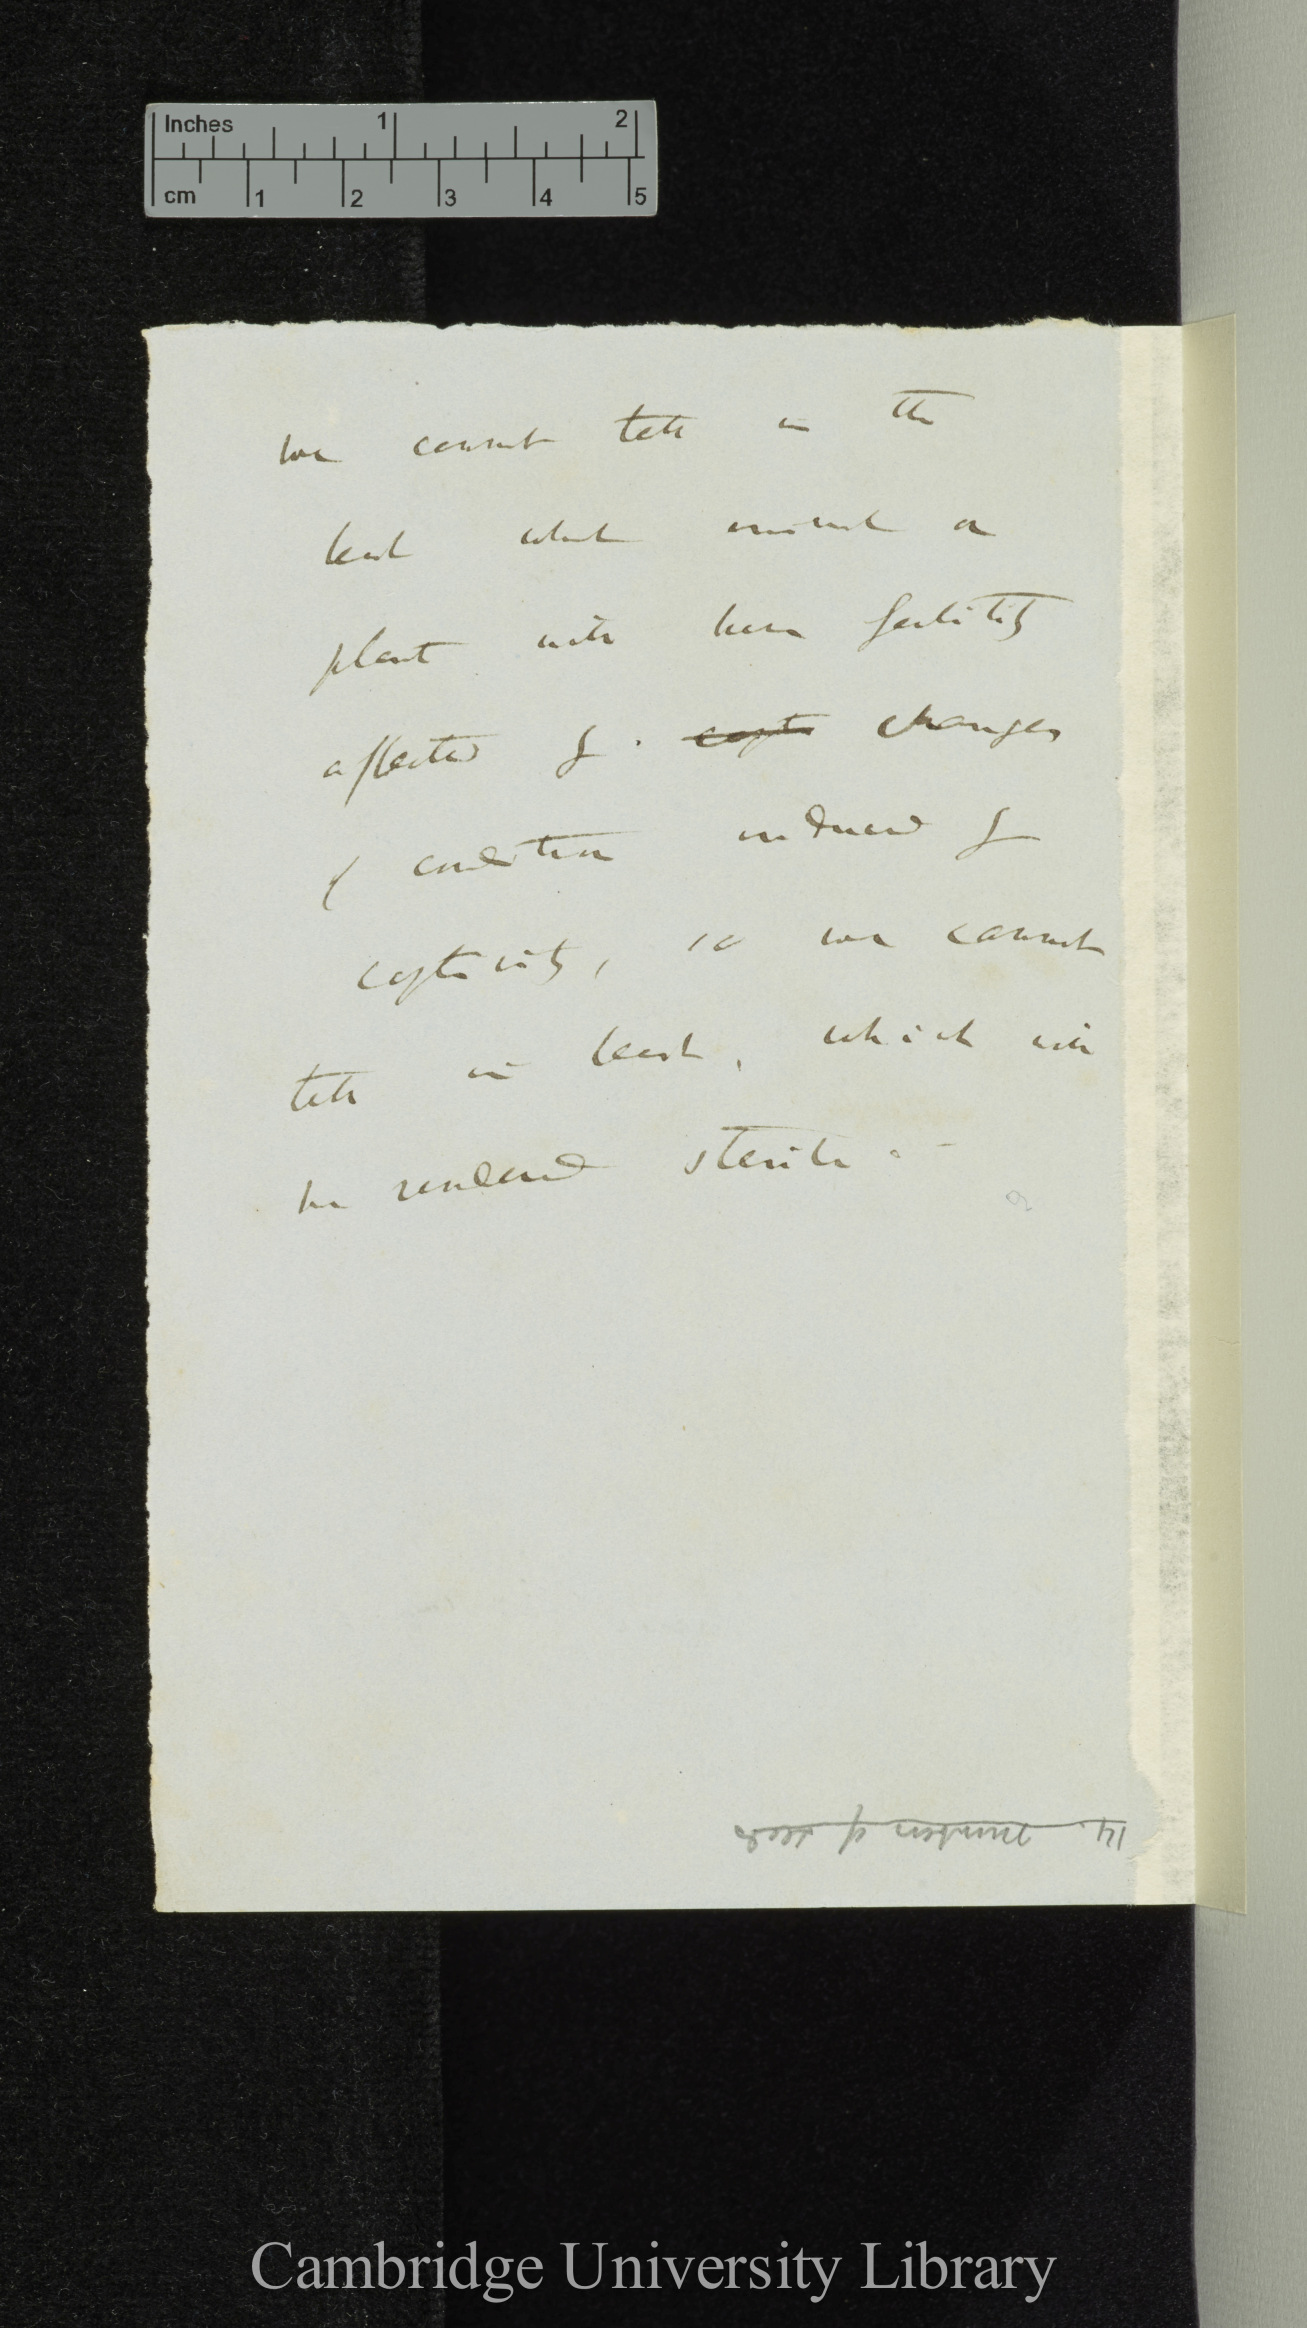 Inches 1 2
cm 1 2 3 4 5
we cannot tell in the
least what animal or
plant will have fertility
affected by capt changes
of condition induced by
captivity, so we cannot
tell in least, which will
be rendered sterile.—
14. Number of seeds
Cambridge University Library